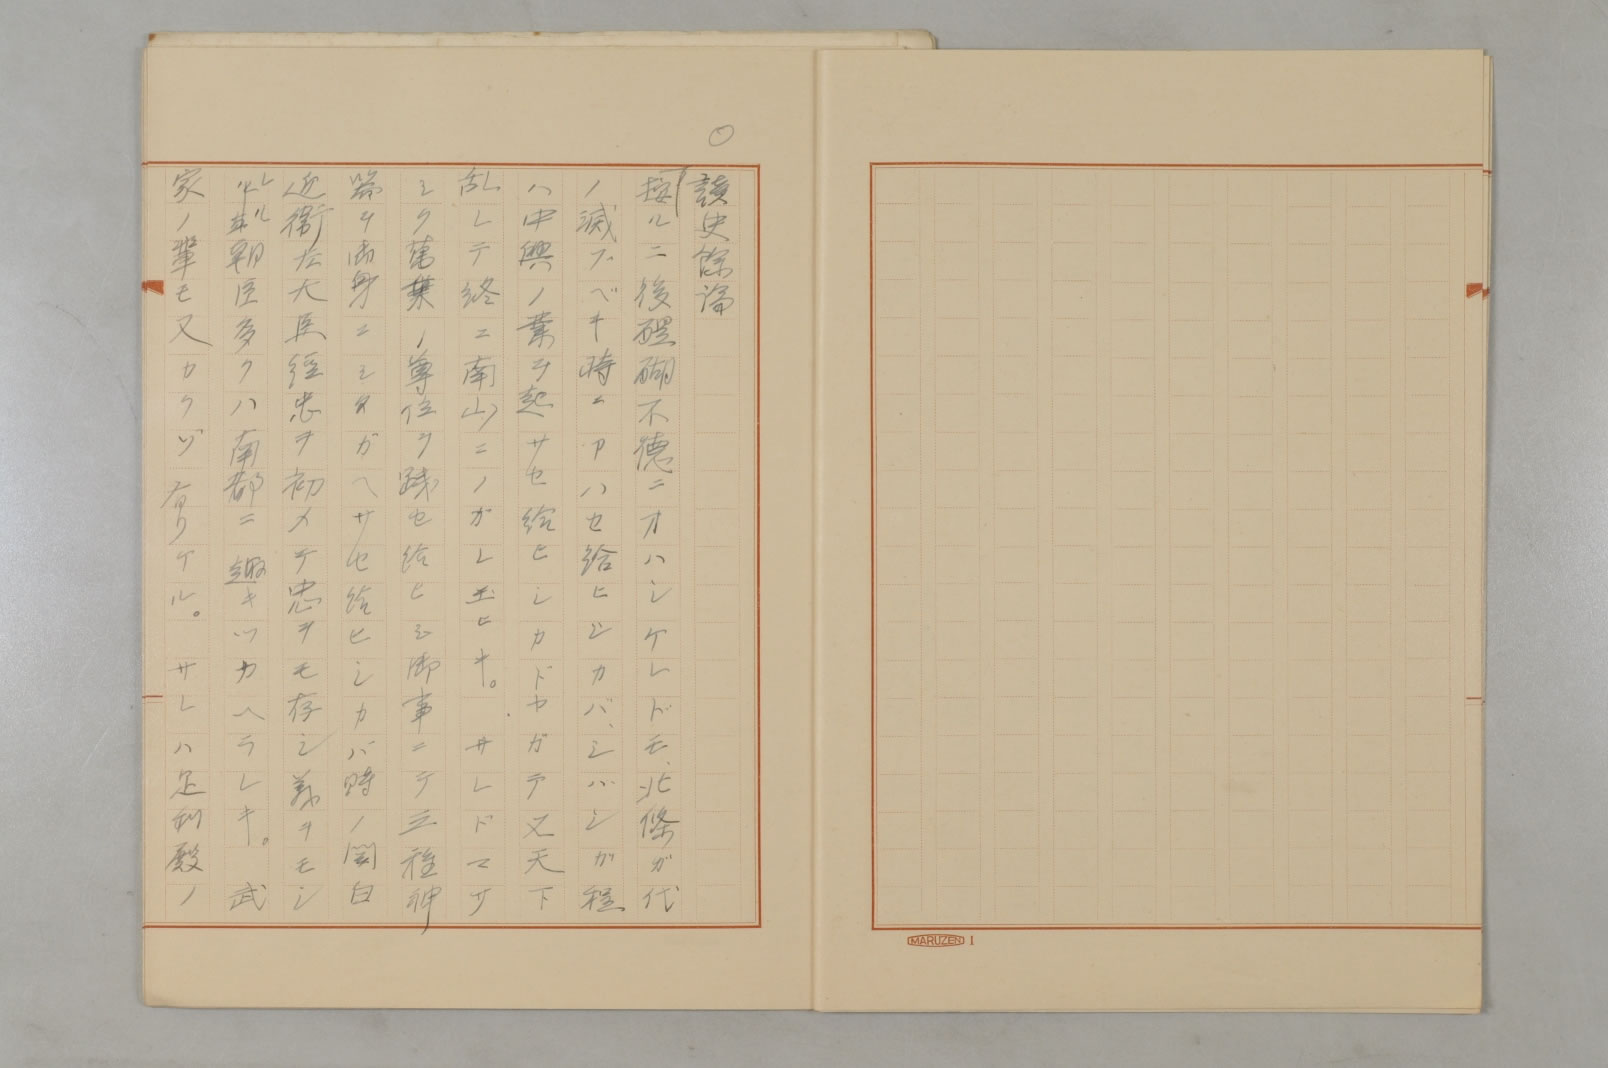 讀史餘論
「按ルニ後醍醐不徳ニオハシケレドモ、北條ガ代
ノ滅ブベキ時ニアハセ給ヒシカバ、シバシガ程
ハ中興ノ業ヲ起サセ給ヒシカドヤガテ又天下
乱レテ終ニ南山ニノガレ玉ヒキ。サレドマサ
シク萬葉ノ尊位ヲ践セ給ヒシ御事ニテ三種神
器ヲ御身ニシタガヘサセ給ヒシカバ時ノ関白
近衛左大臣經忠ヲ初メテ忠ヲモ存シ義ヲモシ
レル朝臣多クハ南都ニ趣キツカヘラレキ。武
家ノ輩モ又カクゾ有リケル。サレハ足利殿ノ
MARUZEN 1